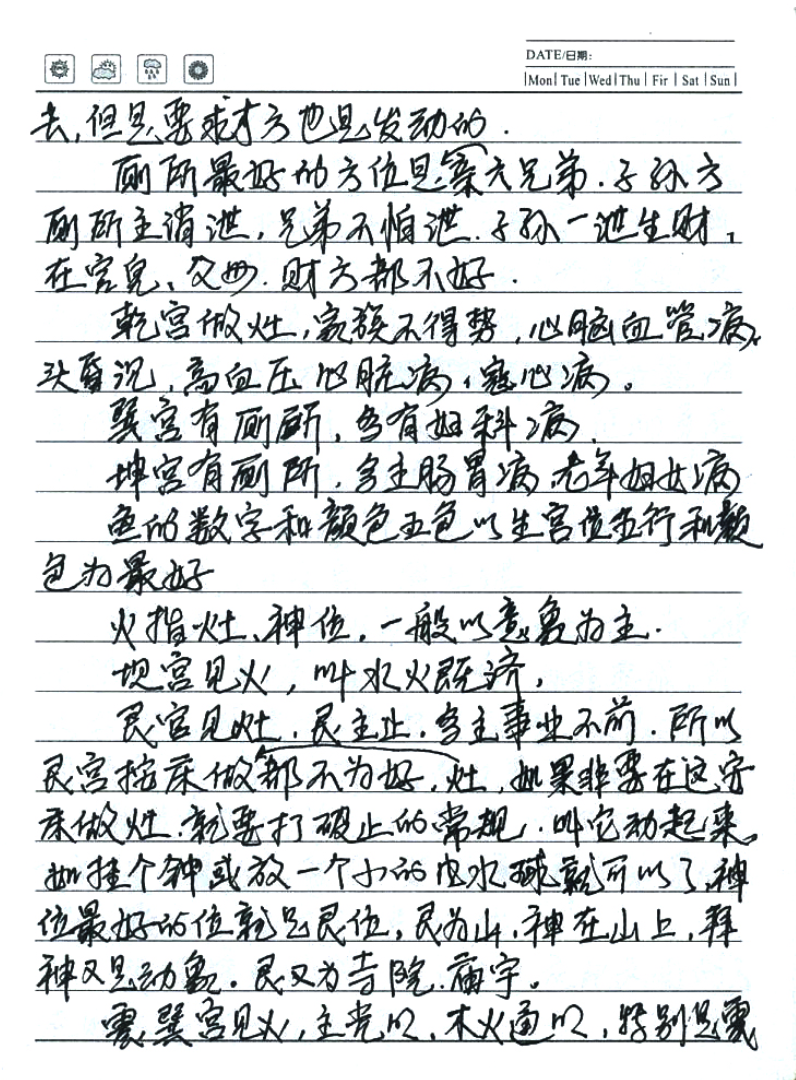 DATE/日期:
Mon Tue Wed Thu Fir Sat Sun
去,但是要求才方也是发动的.
厕所最好的方位是第六兄弟.子孙方
厕所主消泄,兄弟不怕泄.子孙一泄生财,
在官鬼、父母.财方都不好.
乾宫做灶,家族不得势,心脑血管病,
头昏沉,高血压心脏病,冠心病。
巽宫有厕所,多有妇科病.
坤宫有厕所,多主肠胃病,老年妇女病
鱼的数字和颜色五色以生宫位五行和颜
色为最好
火指灶、神位,一般以意象为主.
坎宫见火,叫水火既济,
艮宫见灶,艮主止.多主事业不前.所以
艮宫按床做都不为好,灶,如果非要在这安
床做灶.就要打破止的常规,叫它动起来。
如挂个钟或放一个小的水就可以了,神
位最好的位就是艮位,艮为山,神在山上,拜
神又是动象.艮又为寺院.庙宇。
震巽宫见火,主光明,木火通明,特别是震